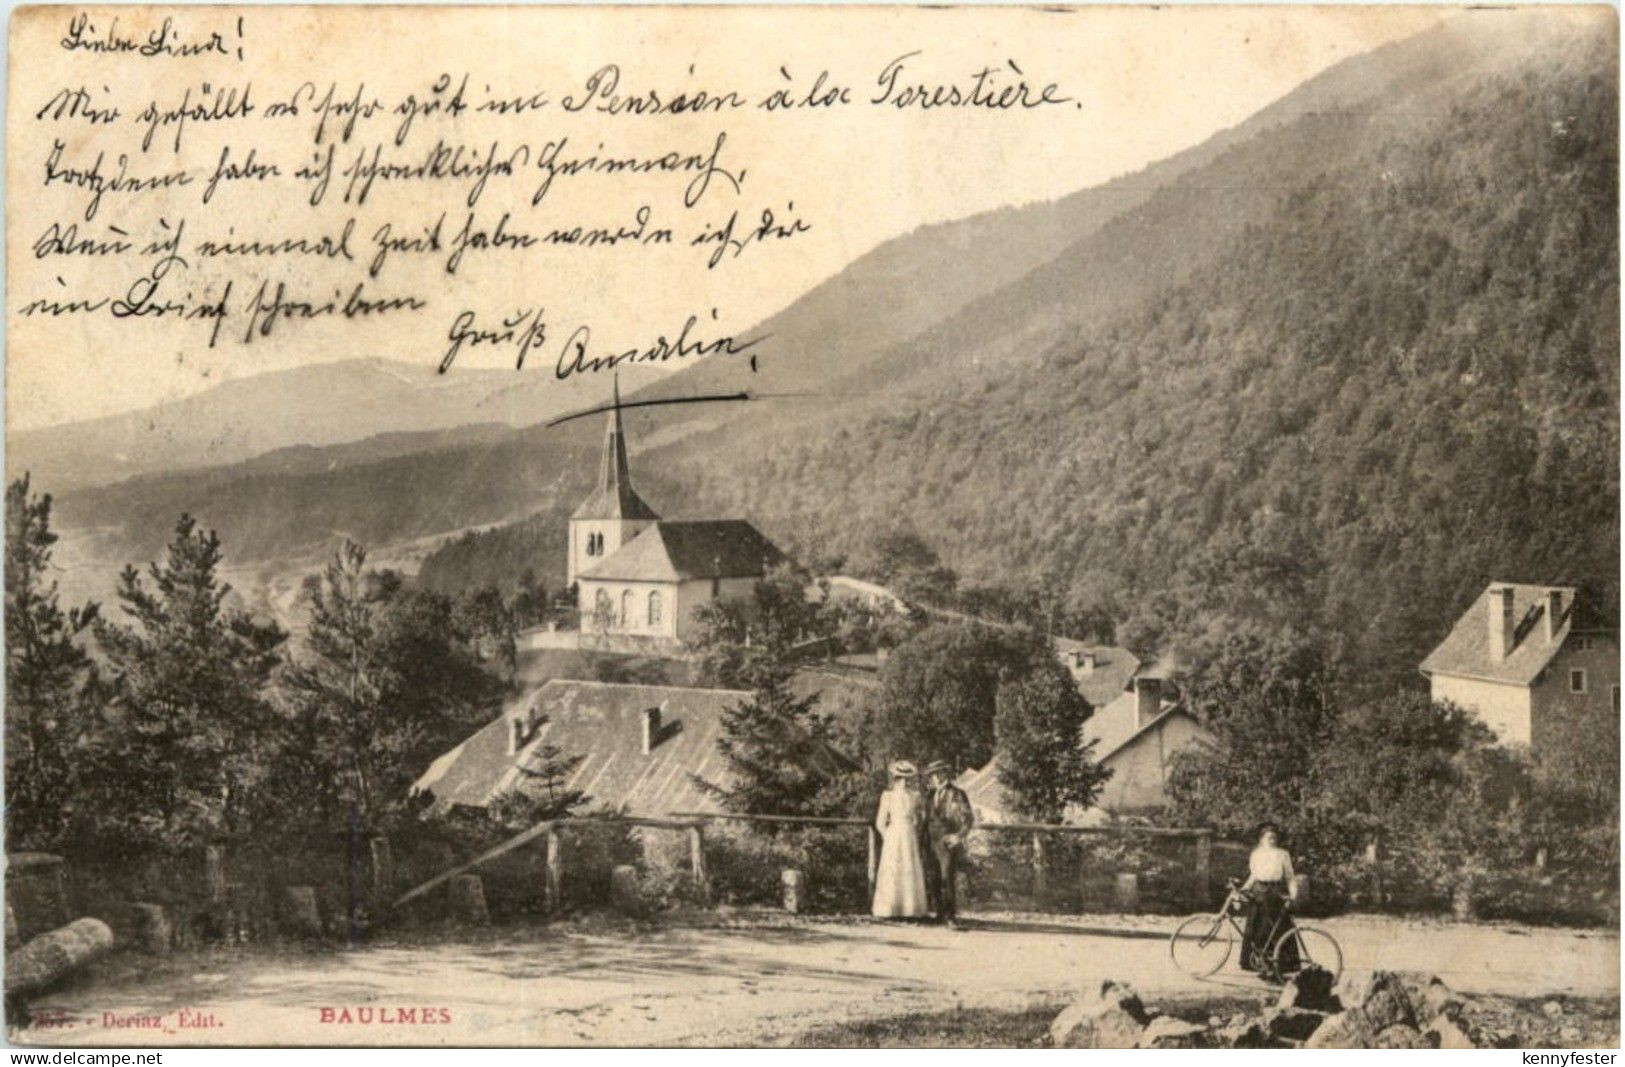 Liebe Lina!
Mir gefällt es sehr gut im Pension à la Forestière.
Trotzdem habe ich schreckliches Heimweh,
Wen̄ ich einmal Zeit habe werde ich dir
ein Brief schreiben
Gruß Amalie.
Deriaz, Édit. BAULMES
www.delcampe.net kennyfester